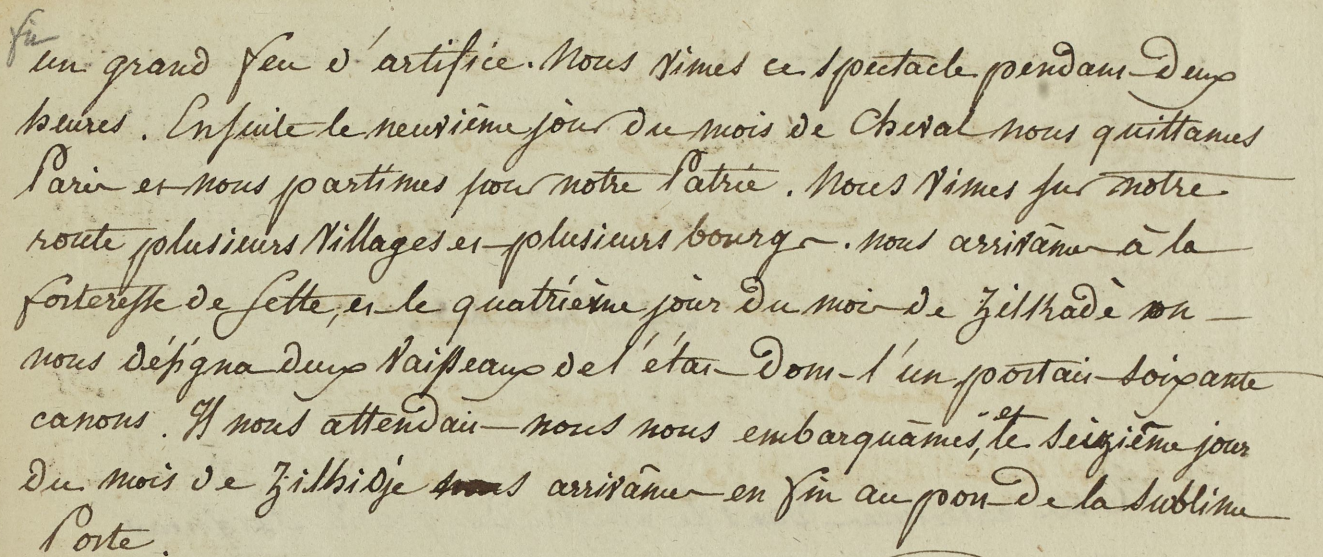 fin
un grand feu d'artifice. Nous vimes ce spectacle pendant deux
heures. Ensuite le neuviême jour du mois de Cheval nous quittames
Paris et nous partimes pour notre Patrie. Nous vimes sur notre
route plusieurs villages et plusieurs bourgs. nous arrivâmes à la
forteresse de Sette, et le quatriême jour du mois de Zilkadè on
nous désigna deux vaisseaux de l'état dont l'un portait soixante
canons. Il nous attendait nous nous embarquâmes, et le seiziême jour
du mois de Zilhidje arrivâmes en fin au port de la sublime
Porte.